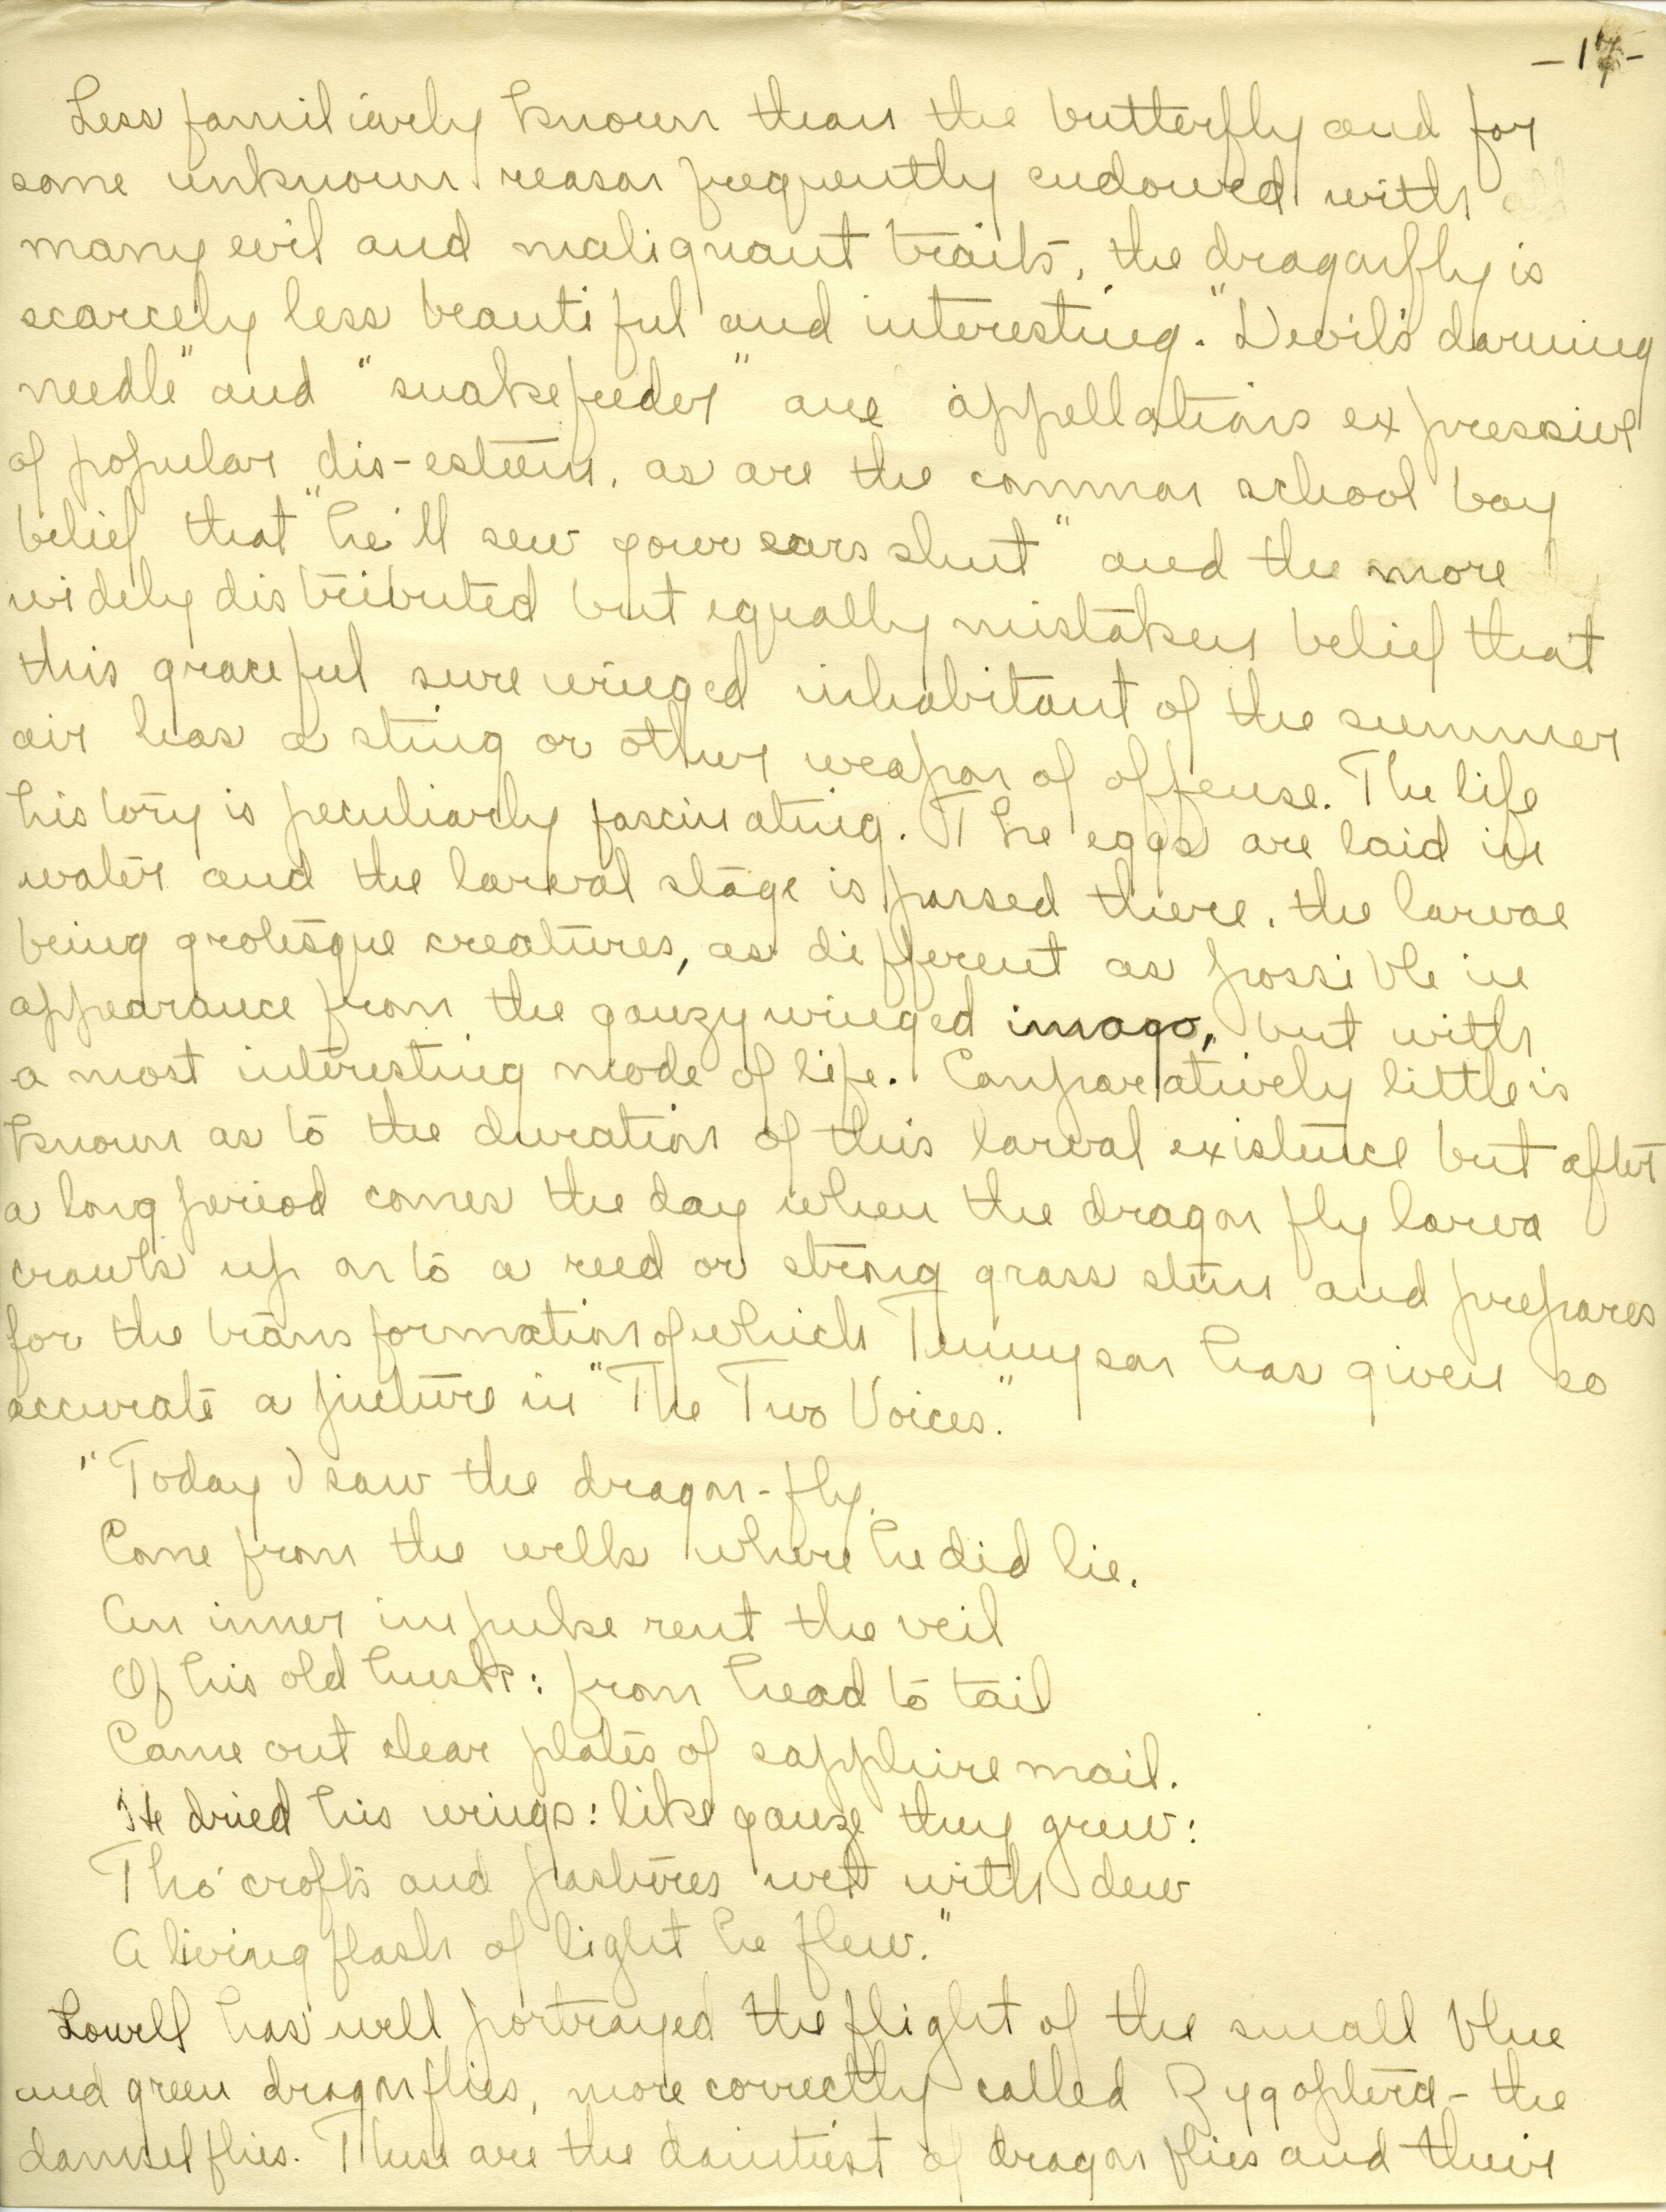 Less familiarly known than the butterfly and for
some unknown reason frequently endowed with
many evil and malignant traits, the dragonfly is
scarcely less beautiful and interesting. "Devil's darning
needle" and "snakefeeder" are appellations expressive
of popular dis-esteem, as are the common school boy
belief that "he'll sew your ears shut" and the more
widely distributed but equally mistaken belief that
this graceful sure winged inhabitant of the summer
air has a sting or other weapon of offense. The life
history is peculiarly fascinating. The eggs are laid in
water and the larval stage is passed there, the larvae
being grotesque creatures, as different as possible in
appearance from the gauzy winged imago, but with
a most interesting mode of life. Comparatively little is
known as to the duration of this larval existence but after
a long period comes the day when the dragon fly larva
crawls up on to a reed or strong grass stem and prepares
for the transformation of which Tennyson has given so
accurate a picture in "The Two Voices."
"Today I saw the dragon-fly
Come from the wells where he did lie.
An inner impulse rent the veil
Of his old husk: from head to tail
Came out clear plates of sapphire mail.
He dried his wings: like gauze they grew:
Tho' crofts and pastures wet with dew
A living flash of light he flew."
Lowell has well portrayed the flight of the small blue
and green dragonflies, more correctly called Zygoptera - the
damsel flies. These are the daintiest of dragon flies and their